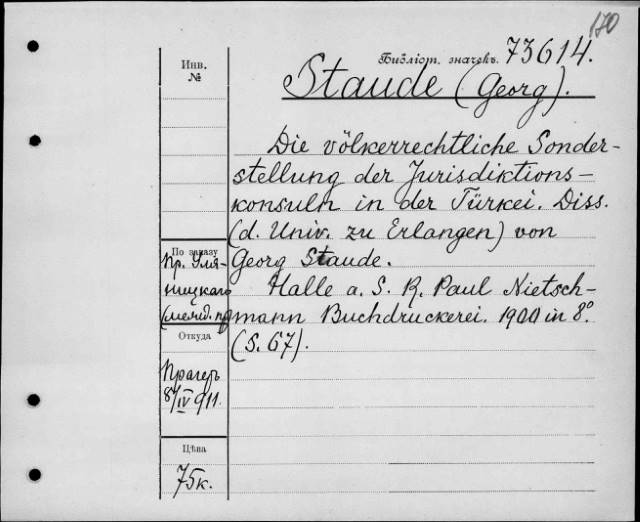 170
Библіот. значекъ. 73614.
Инв.
№
Staude (Georg).
Die völkerrechtliche Sonder-
stellung der Jurisdiktions-
konsuln in der Türkei. Diss.
(d. Univ. zu Erlangen) von
Georg Staude.
Halle a. S. R. Paul Nietsch-
mann Buchdruckerei. 1900 in 8°.
(S. 67).
По заказу
пр. Уля-
ницкаго
Откуда
Прагеръ
8/IV 911.
Цѣна
75к.